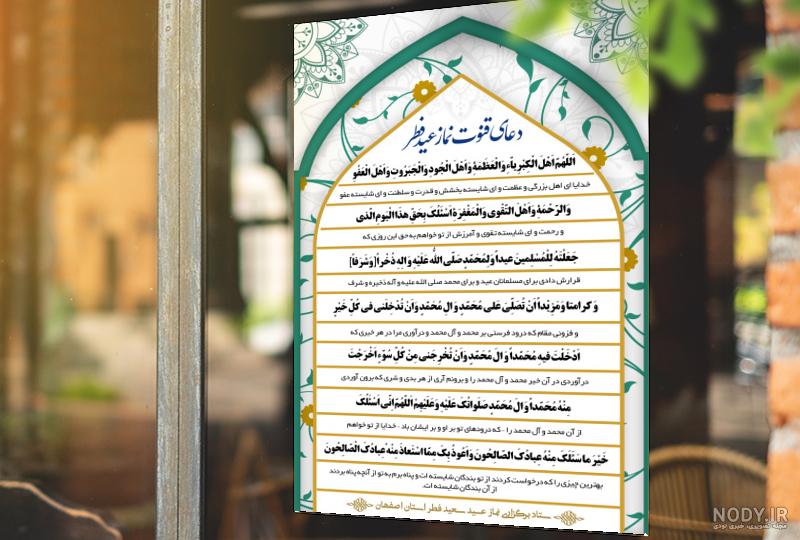 دعای قنوت نماز عید فطر
اَللّهُمَّ اَهْلَ الْکِبْرِیاَّءِ وَالْعَظَمَةِ وَاَهْلَ الْجُودِ وَالْجَبَرُوتِ وَاَهْلَ الْعَفْوِ
خدایا ای اهل بزرگی و عظمت و ای شایسته بخشش و قدرت و سلطنت و ای شایسته عفو
وَالرَّحْمَةِ وَاَهْلَ التَّقْوی وَالْمَغْفِرَةِ اَسْئَلُکَ بِحَقِّ هذَا الْیَومِ الَّذی
و رحمت و ای شایسته تقوی و آمرزش از تو خواهم به حق این روزی که
جَعَلْتَهُ لِلْمُسْلِمینَ عیداً وَلِمُحَمَّدٍ صَلَّی اللّهُ عَلَیْهِ وَ الِهِ ذُخْراً [وَشَرَفاً]
قرارش دادی برای مسلمانان عید و برای محمد صلی الله علیه و آله ذخیره و شرف
وَ کَرامَتاً وَ مَزیْداً اَنْ تُصَلِّیَ عَلی مُحَمَّدٍ وَ الِ مُحَمَّدٍ وَاَنْ تُدْخِلَنی فی کُلِّ خَیْرٍ
و فزونی مقام که درود فرستی بر محمد و آل محمد و درآوری مرا در هر خیری که
اَدْخَلْتَ فیهِ مُحَمَّداً وَ الَ مُحَمَّدٍ وَاَنْ تُخْرِجَنی مِنْ کُلِّ سُوَّءٍ اَخْرَجْتَ
درآوردی در آن خیر محمد و آل محمد را و برونم آری از هر بدی و شری که برون آوردی
مِنْهُ مُحَمَّداً وَ الَ مُحَمَّدٍ صَلَواتُکَ عَلَیْهِ وَعَلَیْهِمْ اَللّهُمَّ اِنّی اَسْئَلُکَ
از آن محمد و آل محمد را - که درودهای تو بر او و بر ایشان باد - خدایا از تو خواهم
خَیْرَ ما سَئَلَکَ مِنْهُ عِبادُکَ الصّالِحُونَ وَ اَعُوذُ بِکَ مِمَّا اسْتَعاذَ مِنْهُ عِبادُکَ الصّالِحُونَ
بهترین چیزی را که درخواست کردند از تو بندگان شایسته ات و پناه برم به تو از آنچه پناه بردند
از آن بندگان شایسته ات.
ستاد برگزاری نماز عید سعید فطر استان اصفهان
NODY.IR
مجله تصویری، خبری نودی